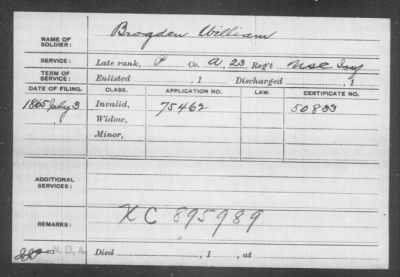 NAME OF SOLDIER: Brogden William
SERVICE: Late rank, P Co. A, 23 Reg't USC Inf
TERM OF SERVICE: Enlisted , 1 Discharged , 1
DATE OF FILING. CLASS. APPLICATION NO. LAW. CERTIFICATE NO.
1865 July 3 Invalid, 75462 50833
Widow,
Minor,
ADDITIONAL SERVICES:
REMARKS: XC 895989
Died , 1 , at